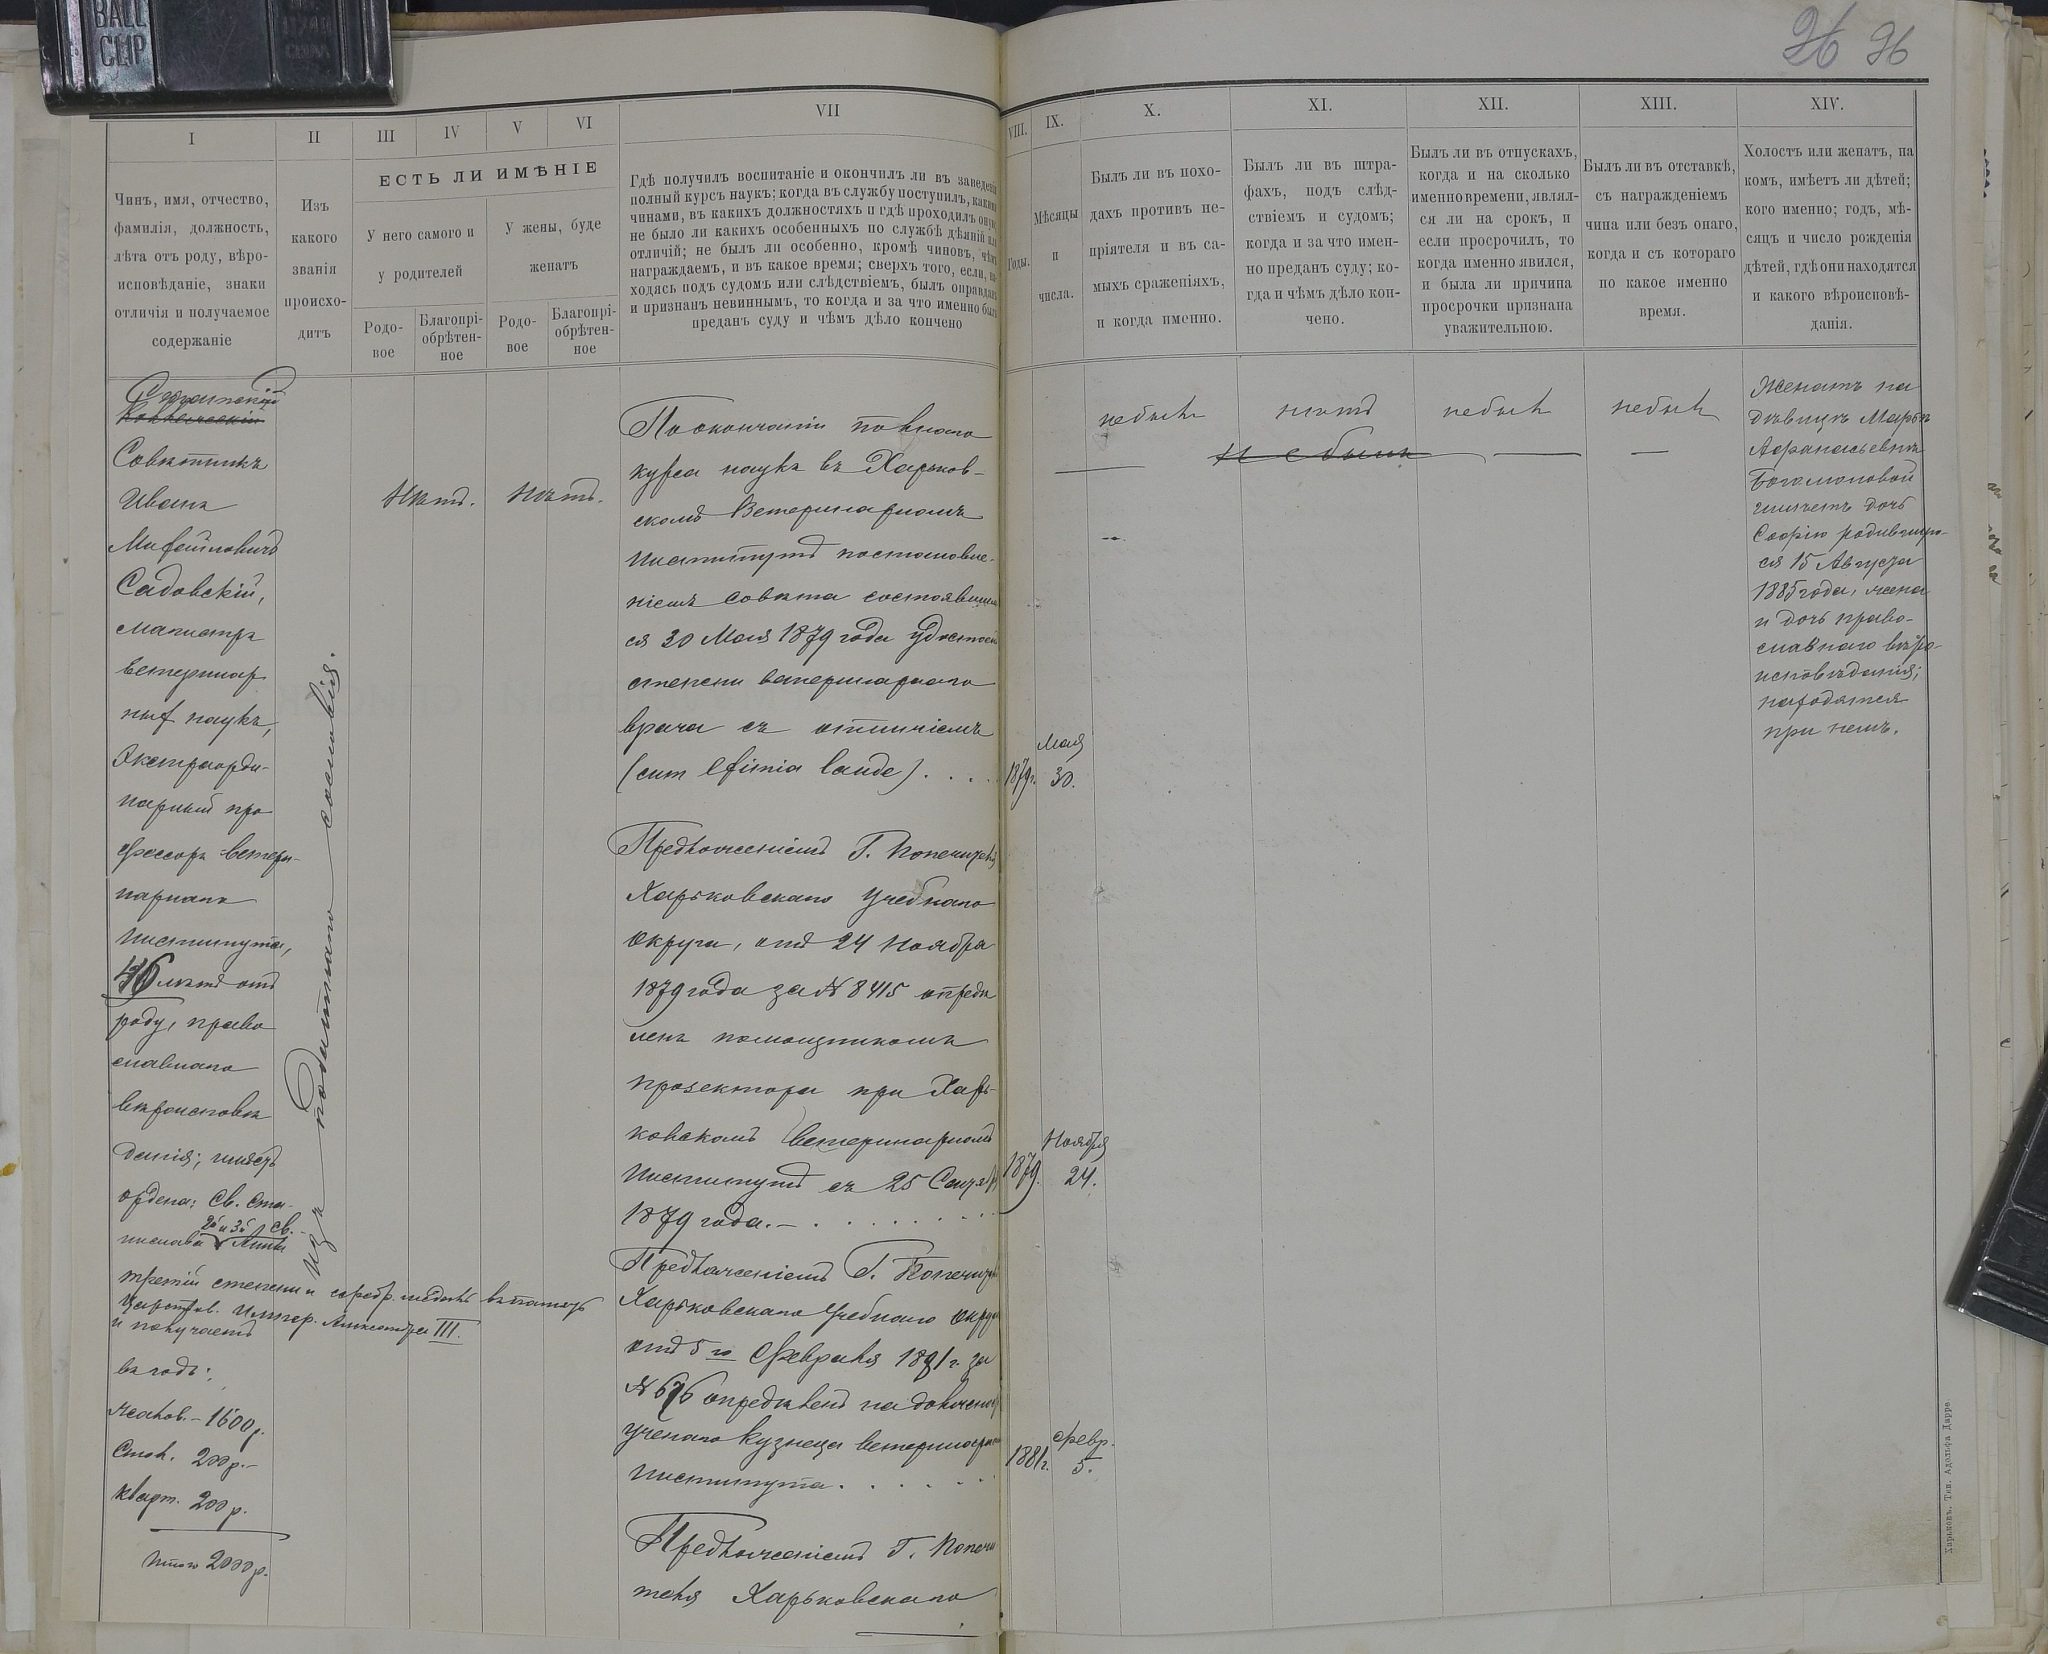 BALL
CLIP
26 96
I
Чинъ, имя, отчество,
фамилія, должность,
лѣта отъ роду, вѣро-
исповѣданіе, знаки
отличія и получаемое
содержаніе
II
Изъ
какого
званія
происхо-
дитъ
III
IV
V
VI
ЕСТЬ ЛИ ИМѢНІЕ
У него самого и
у родителей
У жены, буде
женатъ
Родо-
вое
Благопрі-
обрѣтен-
ное
Родо-
вое
Благопрі-
обрѣтен-
ное
VII
Гдѣ получилъ воспитаніе и окончилъ ли въ заведені
полный курсъ наукъ; когда въ службу поступилъ, каким
чинами, въ какихъ должностяхъ и гдѣ проходилъ оную
не было ли какихъ особенныхъ по службѣ дѣяній или
отличій; не былъ ли особенно, кромѣ чиновъ, чѣмъ
награждаемъ, и въ какое время; сверхъ того, если, на-
ходясь подъ судомъ или слѣдствіемъ, былъ оправданъ
и признанъ невиннымъ, то когда и за что именно былъ
преданъ суду и чѣмъ дѣло кончено
VIII.
Годы.
IX.
Мѣсяцы
и
числа.
X.
Былъ ли въ похо-
дахъ противъ не-
пріятеля и въ са-
мыхъ сраженіяхъ,
и когда именно.
XI.
Былъ ли въ штра-
фахъ, подъ слѣд-
ствіемъ и судомъ;
когда и за что имен-
но преданъ суду; ко-
гда и чѣмъ дѣло кон-
чено.
XII.
Былъ ли въ отпускахъ,
когда и на сколько
именно времени, являл-
ся ли на срокъ, и
если просрочилъ, то
когда именно явился,
и была ли причина
просрочки признана
уважительною.
XIII.
Былъ ли въ отставкѣ,
съ награжденіемъ
чина или безъ онаго,
когда и съ котораго
по какое именно
время.
XIV.
Холостъ или женатъ, на
комъ, имѣетъ ли дѣтей;
кого именно; годъ, мѣ-
сяцъ и число рожденія
дѣтей, гдѣ они находятся
и какого вѣроисповѣ-
данія.
Совѣтникъ
Иванъ
Михайловичъ
Садовскій,
магистръ
ветеринар
ныхъ наукъ,
Экстраорди-
нарный про
фессоръ ветери-
нарнаго
Института,
46 лѣтъ отъ
роду, право
славнаго
вѣроисповѣ
данія; имѣетъ
ордена: Св. Ста-
2й и 3й, Св.
нислава Анны
третьей степени и серебр. медаль въ память
Царств. Импер. Александра III.
и получаетъ
въ годъ:
жалов. – 1600 р.
Стол. 200 р. –
кварт. 200 р.
Итого 2000 р.
изъ податнаго сословія.
Нѣтъ.
Нѣтъ.
По окончаніи полнаго
курса наукъ въ Харьков-
скомъ Ветеринарномъ
Институтѣ постановле-
ніемъ совѣта состоявшим
ся 30 Мая 1879 года удостоен
степени ветеринарнаго
врача съ отличіемъ
(cum eximia laude) . . . .
Предложеніемъ Г. Попечителя
Харьковскаго Учебнаго
Округа, отъ 24 Ноября
1879 года за № 8415 опредѣ
ленъ помощникомъ
прозектора при Харь-
ковскомъ Ветеринарномъ
Институтѣ съ 25 Сентяб
1879 года. – . . . . . . .
Предложеніемъ Г. Попечит
Харьковскаго Учебнаго Округа
отъ 5го Февраля 1881 г. за
№ 676 опредѣленъ на должност
ученаго кузнеца ветеринарн
Института. . . . . .
Предложеніемъ Г. Попечи
теля Харьковскаго
1879 г.
Мая
30.
1879.
Ноября
24.
1881 г.
Февр.
5.
не былъ
нѣтъ
не былъ
не былъ
не былъ
Женатъ на
дѣвицѣ Марьѣ
Афанасьевнѣ
Богомоловой
имѣетъ дочь
Софію родившую-
ся 15 Августа
1885 года, жена
и дочь право-
славнаго вѣро-
исповѣданія;
находятся
при немъ.
Харьковъ. Тип. Адольфа Дарре